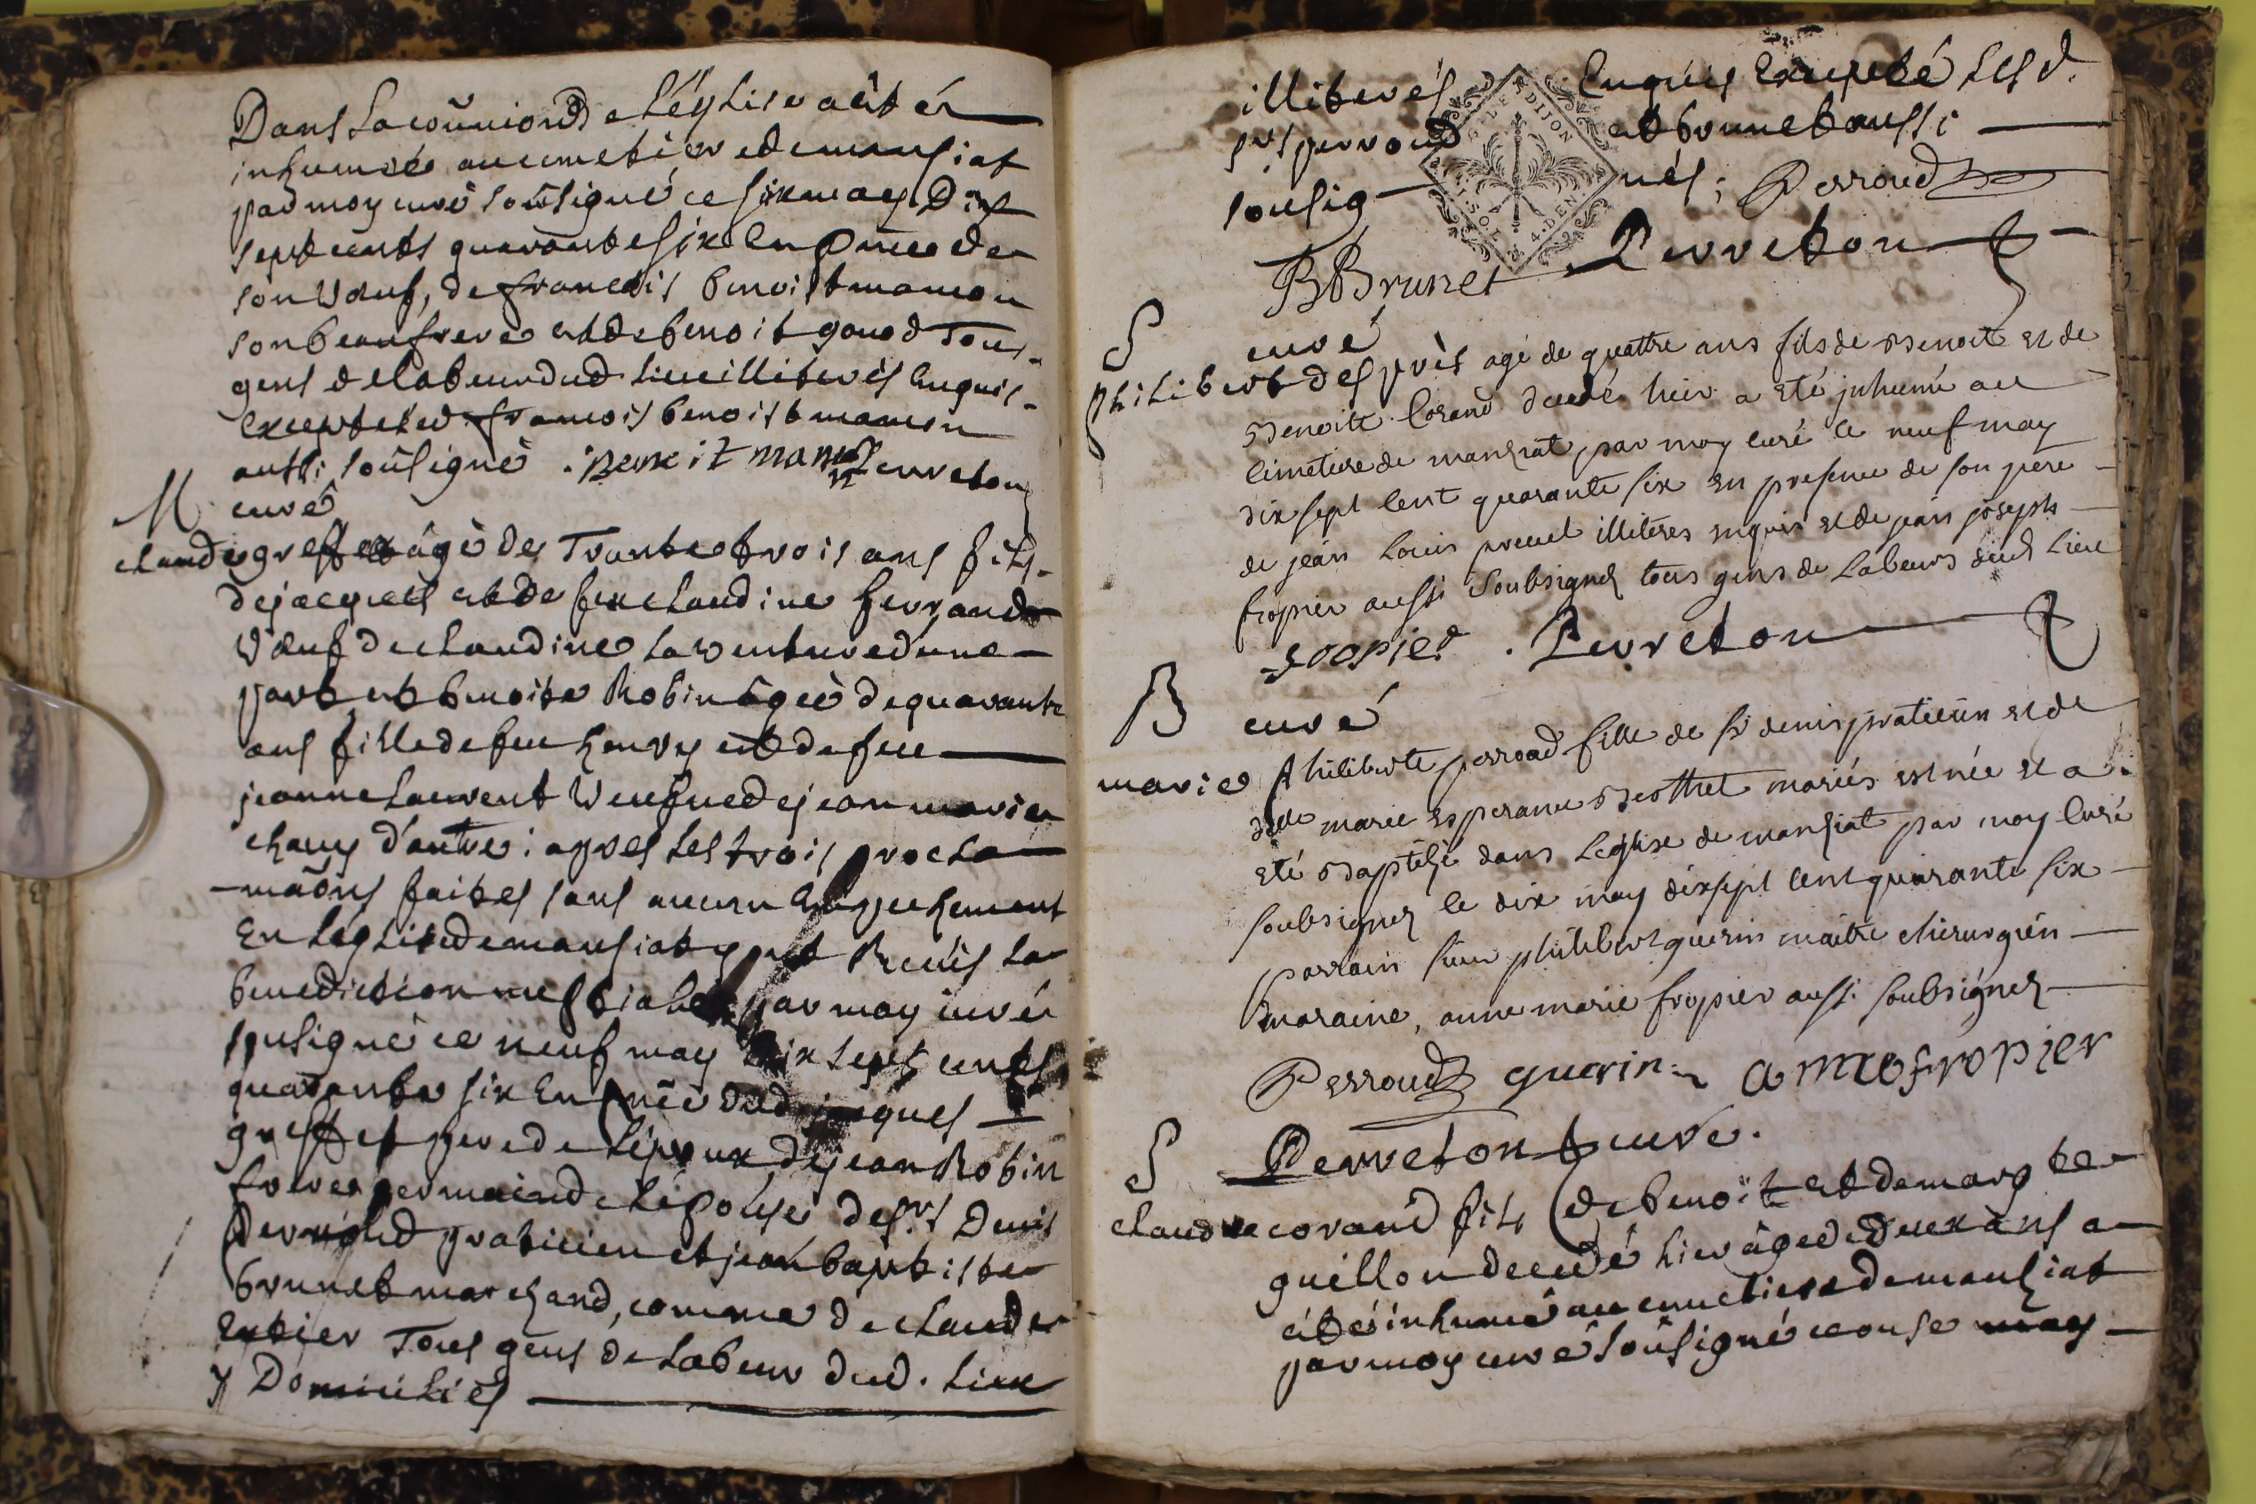 Dans La coũnion de L'église a été
inhumée au cimetiere de mansiat
par moy curé soûsigné ce six may Dix
sept cents quarante six En pnce de
son Vœuf, de francois benoist manon
son beaufrere et de benoit gonod Tous
gens de labeur dud lieu illiterés Enquis
Excepté led francois benoist manon
aussi soûsigné . Benoit manon Perreton
curé
M
claude greffet âgé de Trente trois ans fils
de jacques et de feue claudine ferrand
Vœuf de claudine La venture d'une
part et benoite Robin âgée de quarante
ans fille de feu henry et de feue
jeanne Laurent Veufue de jean marie
chany d'autre : apres Les trois procla
maõns faites sans aucun Empechement
En L'église de mansiat ont Reçûs La
benediction nuptiale par moy curé
soûsigné ce neuf may Dix sept cents
quarante six En pnce dud jacques
greffet pere de L'epoux de jean Robin
frere germain de L'épouse de srs Denis
Perroud praticien et jean baptiste
brunet marchand, comme de claude
Tous gens de Labeur dud. Lieu
y Domiciliés
illiterés Enquis Excepté Les d.
srs perroud et brunet aussi
soûsig nés ; Perroud
G. DE DIJON
SOL. 4. DEN
BBrunet Perreton
curé
S
philibert desprès agé de quattre ans fils de Benoit et de
Benoite Corand decedé hier a eté jnhumé au
cimetiere de mansiat par moy curé le neuf may
dix sept cent quarante six en presence de son père
de jean Louis preuel illiteres enquis et de jean joseph
fropier aussi Soubsignez tous gens de Labeurs dud Lieu
fropier . Perreton
curé
B
marie philiberte perroud fille de sr denis praticien et de
dlle marie Esperance Beothet mariés est née et a
eté Baptisée dans L'eglise de mansiat par moy Curé
Soubsigné le dix may dix sept cent quarante six
parrain sieur philibert guerin maitre chirurgien
maraine, anne marie fropier aussi soubsignez
Perroud guerin a mie fropier
Perreton curé.
S
claude corand fils de benoit et de marg te
guillon decedé hier âgé de deux ans a
été inhumé au cimetiere de mansiat
par moy curé soûsigné ce onse may